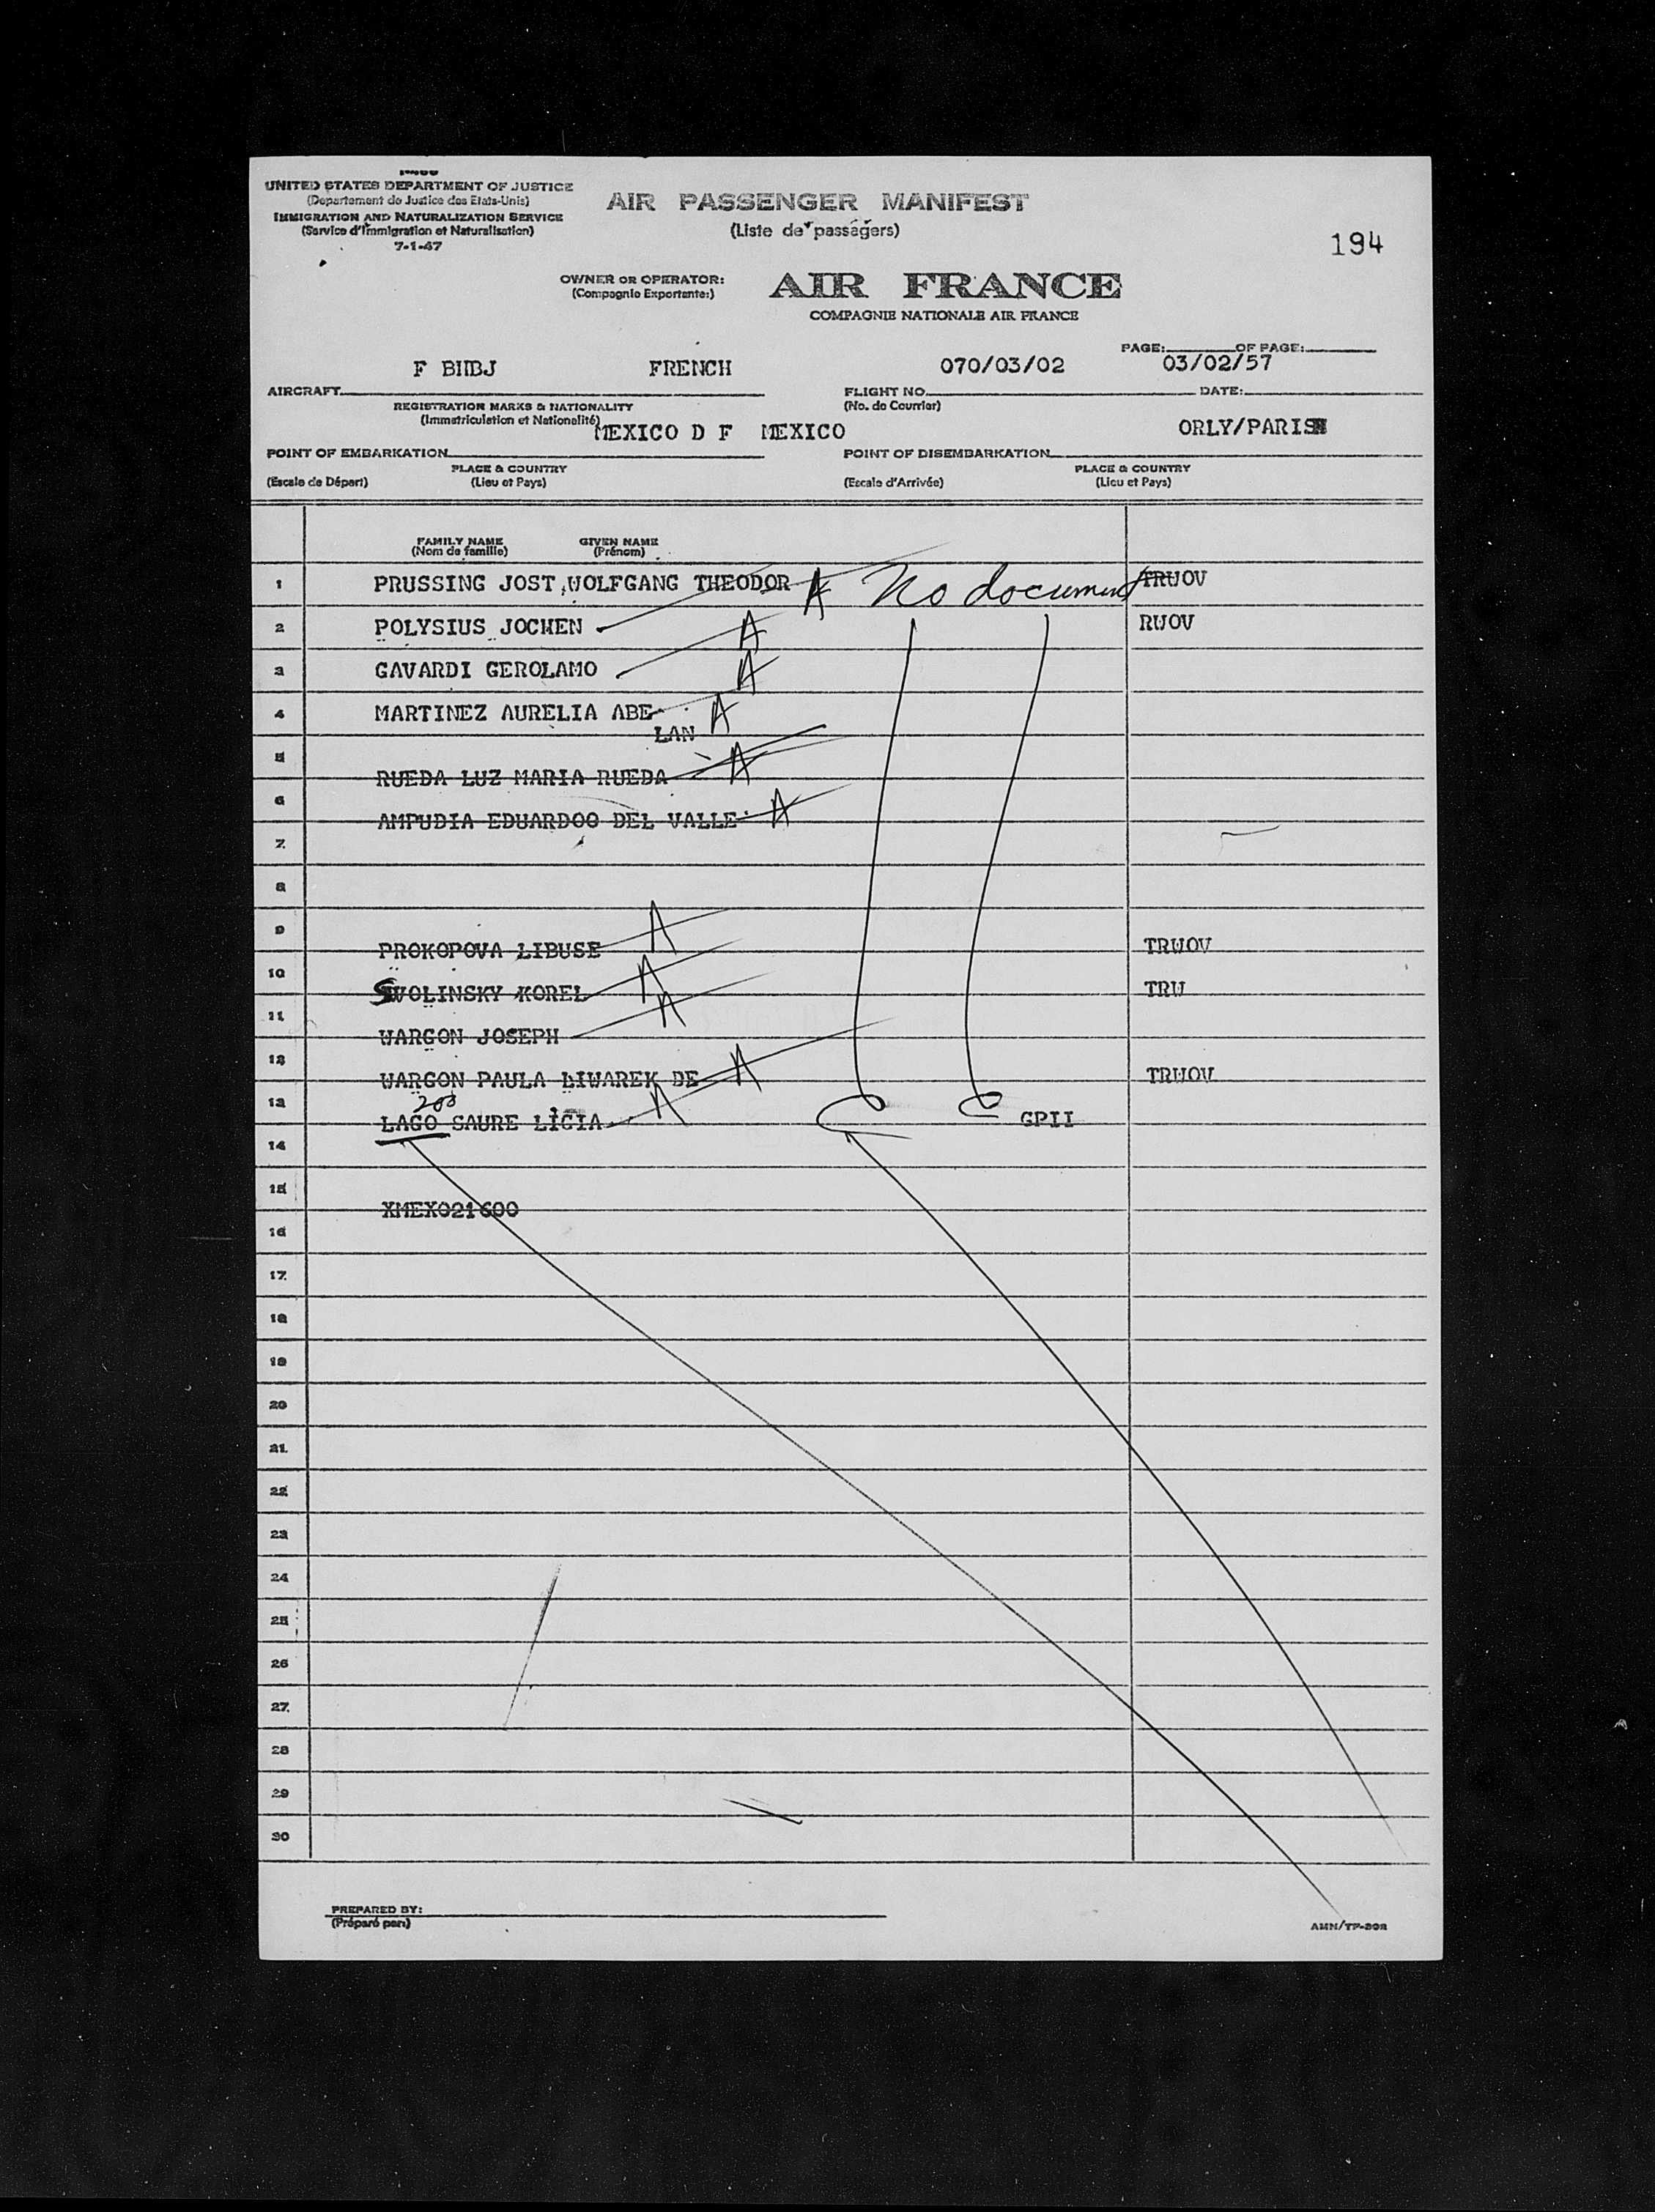 UNITED STATES DEPARTMENT OF JUSTICE
(Departement de Justice des Etats-Unis)
IMMIGRATION AND NATURALIZATION SERVICE
(Service d'Immigration et Naturalisation)
7-1-47
AIR PASSENGER MANIFEST
(Liste de passagers)
194
OWNER OR OPERATOR:
(Compagnie Exportante:)
AIR FRANCE
COMPAGNIE NATIONALE AIR FRANCE
PAGE: OF PAGE:
F BHBJ FRENCH 070/03/02 03/02/57
AIRCRAFT FLIGHT NO. DATE:
REGISTRATION MARKS & NATIONALITY (No. de Courrier)
(Immatriculation et Nationalité)
MEXICO D F MEXICO ORLY/PARIS
POINT OF EMBARKATION POINT OF DISEMBARKATION
PLACE & COUNTRY PLACE & COUNTRY
(Escale de Départ) (Lieu et Pays) (Escale d'Arrivée) (Lieu et Pays)
FAMILY NAME GIVEN NAME
(Nom de famille) (Prénom)
1 PRUSSING JOST,WOLFGANG THEODOR A No document TRWOV
2 POLYSIUS JOCHEN A RWOV
3 GAVARDI GEROLAMO A
4 MARTINEZ AURELIA ABE A
LAN
5
RUEDA LUZ MARIA RUEDA A
6
AMPUDIA EDUARDOO DEL VALLE A
7
8
9
PROKOPOVA LIBUSE A TRWOV
10
SWOLINSKY KOREL A TRW
11
WARGON JOSEPH A
12
WARGON PAULA LIWAREK DE A TRWOV
13
LAGO SAURE LICIA A GPII
14
15
XMEX021600
16
17
18
19
20
21
22
23
24
25
26
27
28
29
30
PREPARED BY:
(Préparé par:)
AMN/TP-302